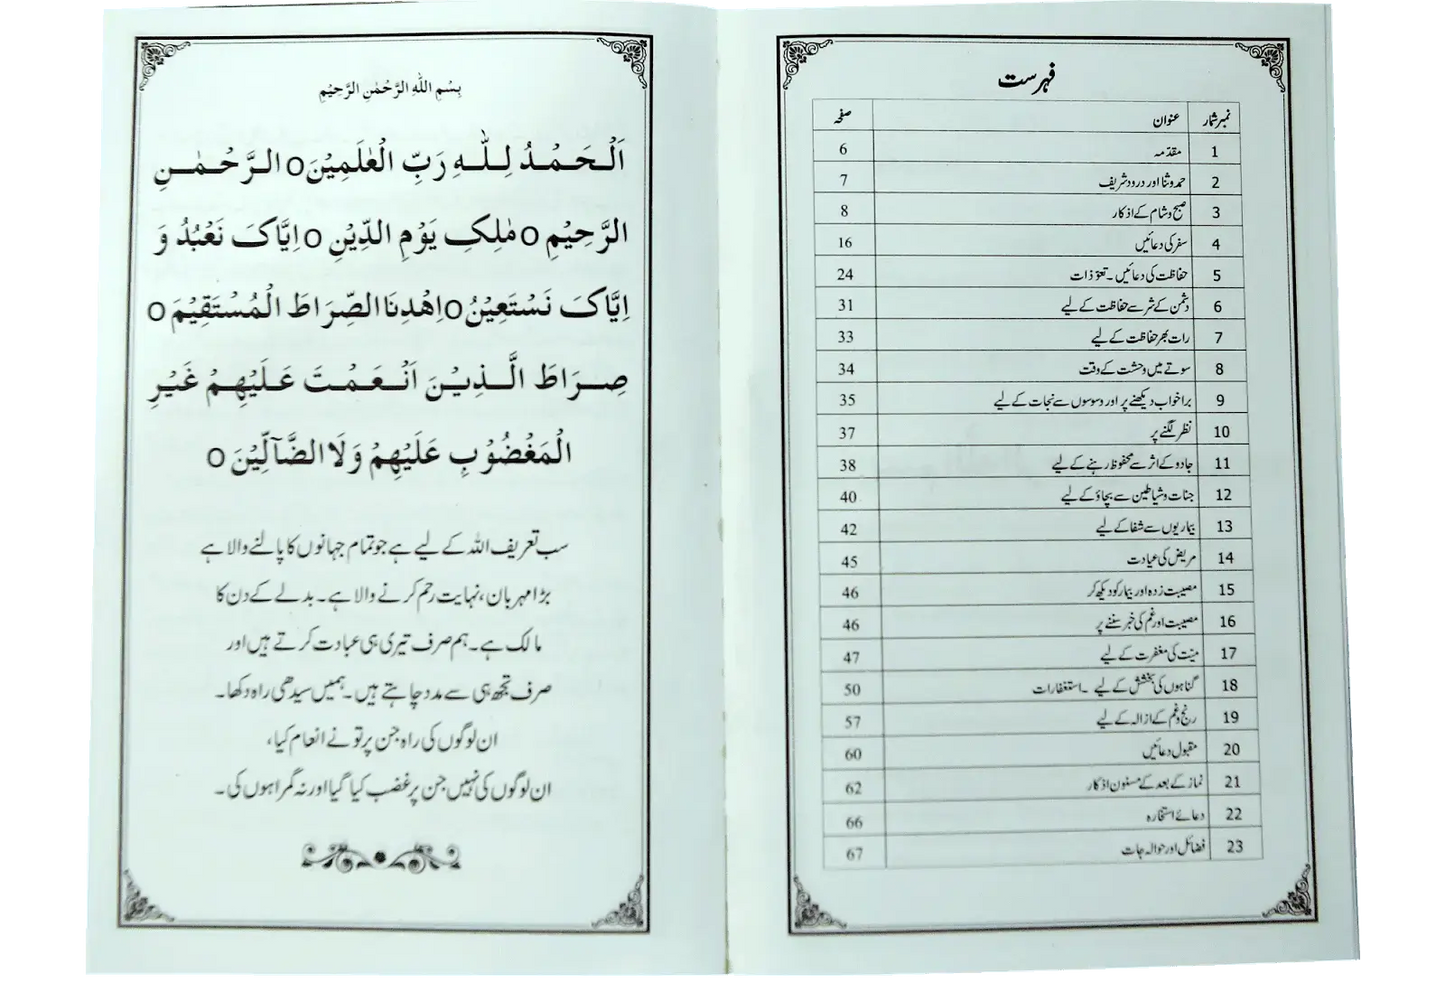 بِسْمِ اللّٰهِ الرَّحْمٰنِ الرَّحِيْمِ
اَلْحَمْدُ لِلّٰهِ رَبِّ الْعٰلَمِيْنَ o الرَّحْمٰنِ
الرَّحِيْمِ o مٰلِكِ يَوْمِ الدِّيْنِ o اِيَّاكَ نَعْبُدُ وَ
اِيَّاكَ نَسْتَعِيْنُ o اِهْدِنَا الصِّرَاطَ الْمُسْتَقِيْمَ o
صِرَاطَ الَّذِيْنَ اَنْعَمْتَ عَلَيْهِمْ غَيْرِ
الْمَغْضُوْبِ عَلَيْهِمْ وَلَا الضَّآلِّيْنَ o
سب تعریف اللہ کے لیے ہے جو تمام جہانوں کا پالنے والا ہے
بڑا مہربان، نہایت رحم کرنے والا ہے۔ بدلے کے دن کا
مالک ہے۔ ہم صرف تیری ہی عبادت کرتے ہیں اور
صرف تجھ ہی سے مدد چاہتے ہیں۔ ہمیں سیدھی راہ دکھا۔
ان لوگوں کی راہ جن پر تو نے انعام کیا،
ان لوگوں کی نہیں جن پر غضب کیا گیا اور نہ گمراہوں کی۔
فہرست
نمبر شمار عنوان صفحہ
1 مقدمہ 6
2 حمد و ثنا اور درود شریف 7
3 صبح و شام کے اذکار 8
4 سفر کی دعائیں 16
5 حفاظت کی دعائیں۔ تعوّذات 24
6 دشمن کے شر سے حفاظت کے لیے 31
7 رات بھر حفاظت کے لیے 33
8 سوتے میں وحشت کے وقت 34
9 برا خواب دیکھنے پر اور وسوسوں سے نجات کے لیے 35
10 نظر لگنے پر 37
11 جادو کے اثر سے محفوظ رہنے کے لیے 38
12 جنات و شیاطین سے بچاؤ کے لیے 40
13 بیماریوں سے شفا کے لیے 42
14 مریض کی عیادت 45
15 مصیبت زدہ اور بیمار کو دیکھ کر 46
16 مصیبت اور غم کی خبر سننے پر 46
17 میّت کی مغفرت کے لیے 47
18 گناہوں کی بخشش کے لیے ۔ استغفارات 50
19 رنج و غم کے ازالہ کے لیے 57
20 مقبول دعائیں 60
21 نماز کے بعد کے مسنون اذکار 62
22 دعائے استخارہ 66
23 فضائل اور حوالہ جات 67